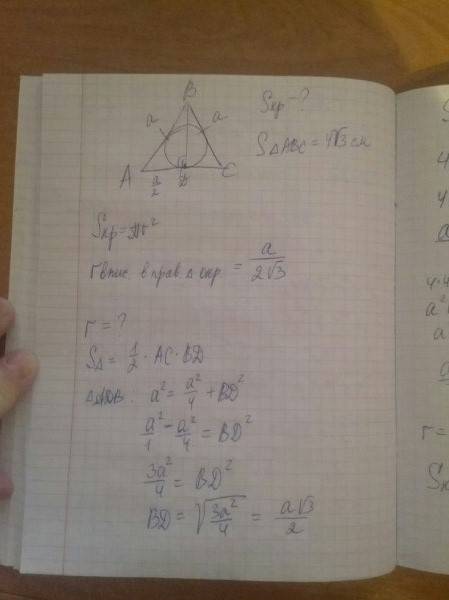 B
a a
A a/2 D C
Sкр - ?
S△ABC = 4√3 см
Sкр = πr²
r впис. в прав △ окр = a/2√3
r = ?
S△ = 1/2 · AC · BD
△ADB. a² = a²/4 + BD²
a²/1 - a²/4 = BD²
3a²/4 = BD²
BD = √3a²/4 = a√3/2
S
4
4
a
4·4
a²
a
a
r =
Sк